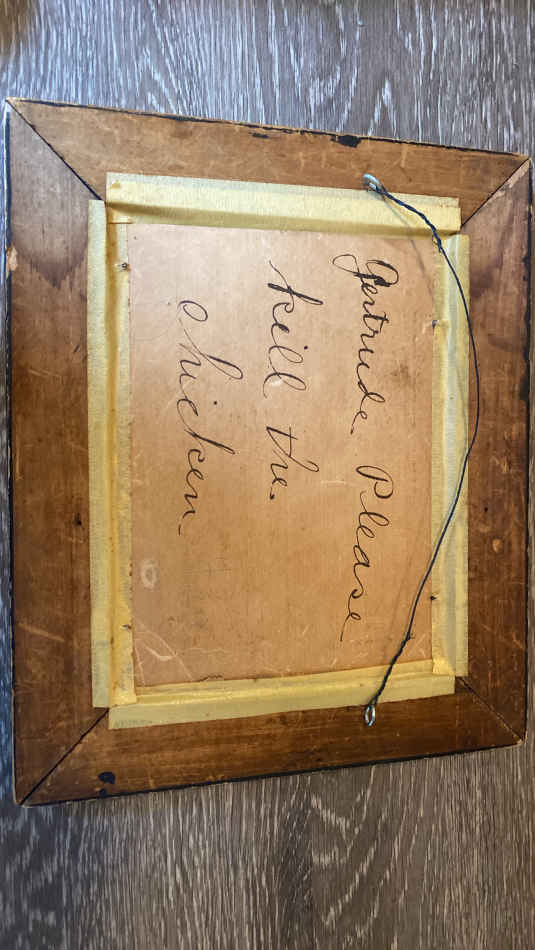 Gertrude. Please
kill the.
chicken